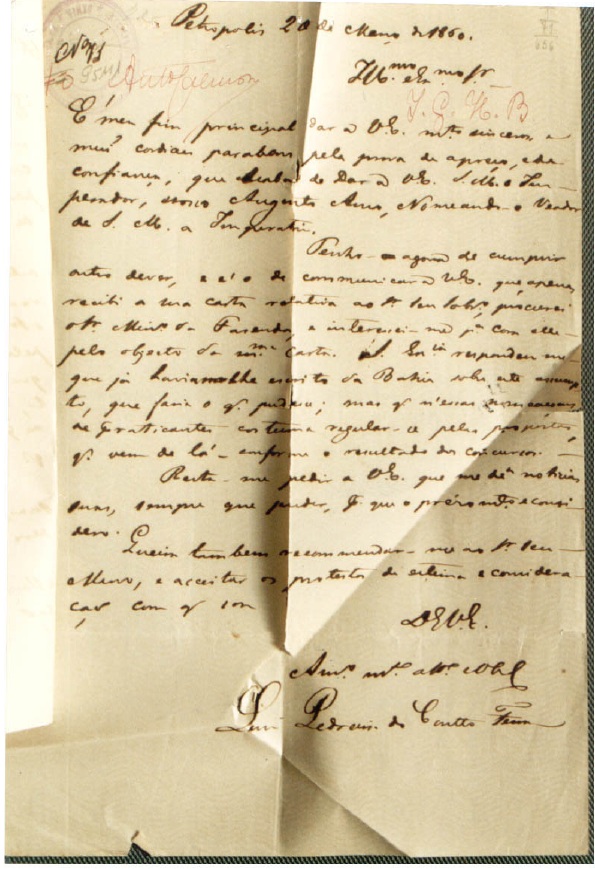 Petropolis 20 de Março de 1860.
Ill.mo e Ex.mo Sr
I. G. H. B
É meu fim principal dar a V.E. mtos sinceros, e
meus cordiais parabens pela prova de apreço, e de
confiança, que acaba de dar a V.E. S. M. o Im-
perador, nosso Augusto Amo, Nomeando-o Veador
de S. M. a Imperatriz.
Tenho - agora de cumprir
outro dever, e é o de communicar a V.E. que apenas
recibi a sua carta relativa ao Sr. seu Sobro, procurei
o Sr. Mino da Fazenda, e interessei-me já com elle
pelo objecto da mma carta. S. Exia respondeu me
que já haviam-lhe escrito da Bahia sobre este assump-
to, que faria o q. pudesse; mas q. n'essas nomeaçoens
de Praticantes costuma regular-se pelas propostas,
q. vem de lá - conforme o resultado dos concursos.
Resta-me pedir a V.E. que me dê noticias
suas, sempre que puder, q. que o prézo mto e consi-
dero.
Queira tambem recommendar-me ao Sr. seu
Mano, e acceitar os protestos de estima e considera-
ção com q. sou
De V.E.
Amo mto atto e Obr
Luis Pedreira do Coutto Ferraz